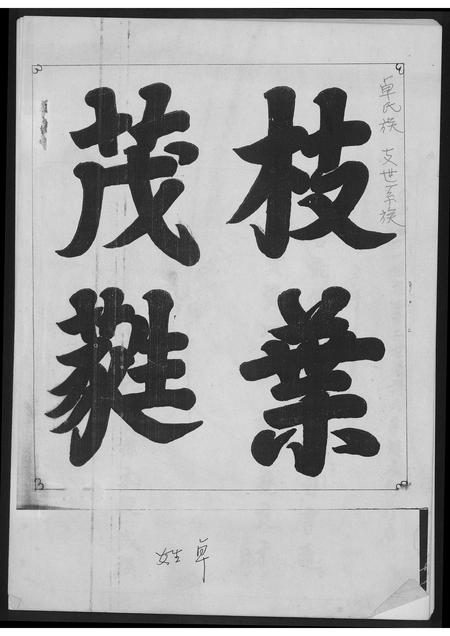 卓氏族 支世系族
枝葉
茂蕤
姓卓